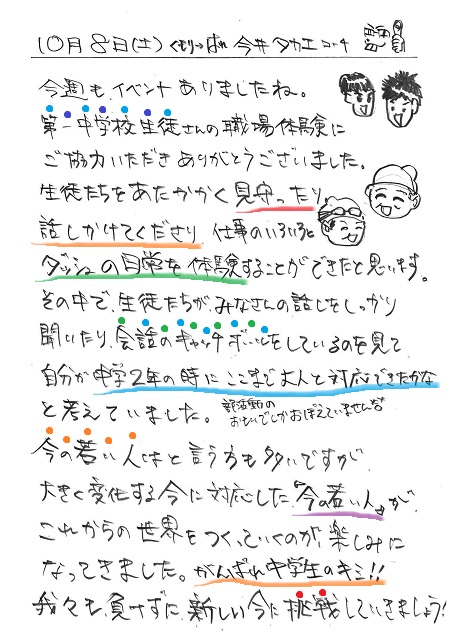 10月8日(土) くもり→はれ 今井タカエコーチ
今週も、イベントありましたね。
第一中学校生徒さんの職場体験に
ご協力いただきありがとうございました。
生徒たちをあたたかく見守ったり
話しかけてくださり 仕事のいろいろと
ダッシュの日常を体験することができたと思います。
その中で、生徒たちがみなさんの話しをしっかり
聞いたり、会話のキャッチボールをしているのを見て
自分が中学2年の時にここまで大人と対応できたかな
と考えていました。 部活動のおもいでしかおぼえていません
今の若い人はと言う方も多いですが、
大きく変化する今に対応した『今の若い人』が、
これからの世界をつくっていくのが、楽しみに
なってきました。がんばれ中学生のキミ!!
我々も、負けずに、新しい今に挑戦していきましょう!